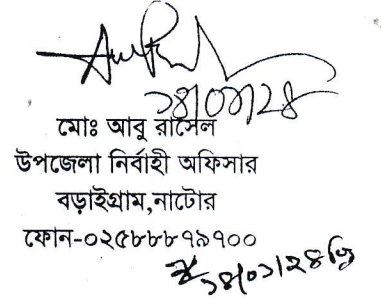 ১৪/০১/২৪
মোঃ আবু রাসেল
উপজেলা নির্বাহী অফিসার
বড়াইগ্রাম,নাটোর
ফোন-০২৫৮৮৮৭৯৭০০
১৪/০১/২৪